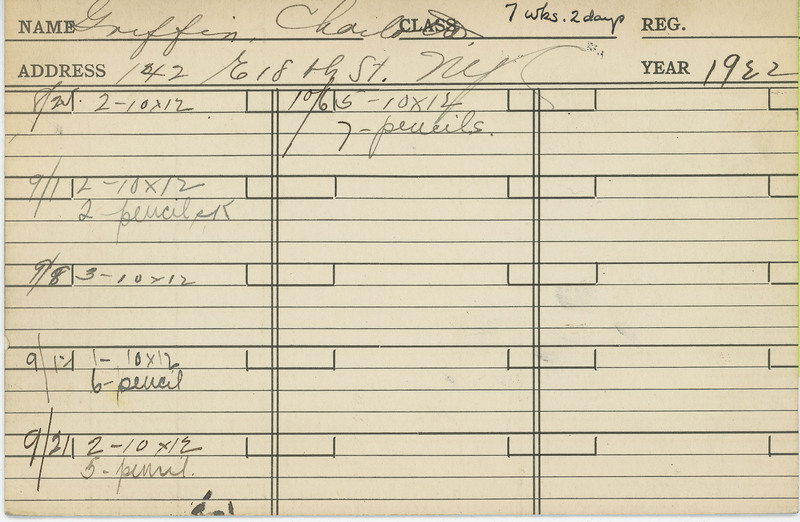 NAME Griffin, CLASS 7 wks. 2 days REG.
ADDRESS 142 E 18th St. NYC YEAR 1922
2-10x12
10/6 5-10x12
7-pencils.
9/1 2-10x12
2-pencil
9/8 3-10x12
9/ 1-10x12
6-pencil
9/21 2-10x12
5-pencil.